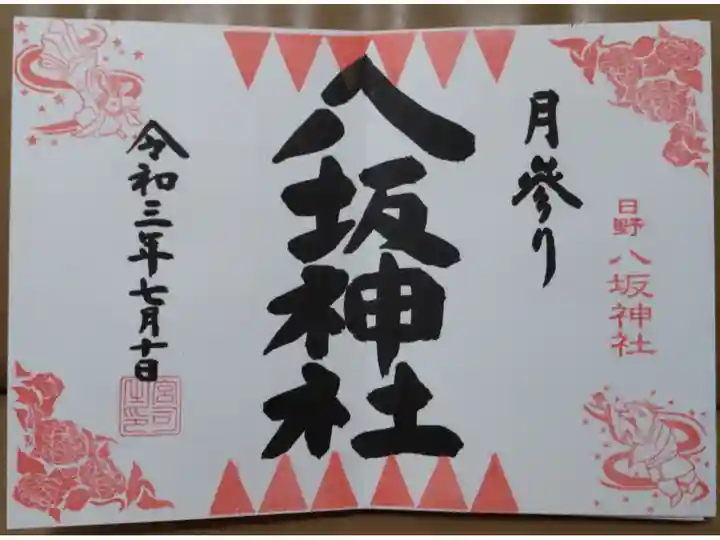 月参り
日野八坂神社
八坂神社
令和三年七月十日
宮司之印